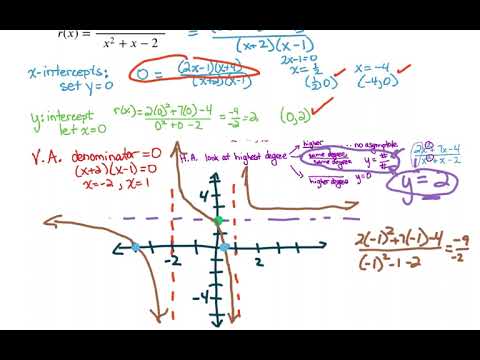 r(x) = ——— = ———
x² + x - 2 (x+2)(x-1)
x-intercepts: 0 = (2x-1)(x+4) / (x+2)(x-1) 2x-1=0 x = -4
set y=0 x = 1/2 (-4, 0)
(1/2, 0)
y-intercept r(x) = 2(0)² + 7(0) - 4 / 0² + 0 - 2 = -4/-2 = 2 (0, 2)
let x=0
V.A. denominator = 0 H.A. look at highest degree
(x+2)(x-1) = 0
x = -2, x = 1
higher : no asymptote
same degree / same degree y = #/#
higher degree y = 0
2x² + 7x - 4 / 1x² + x - 2
y = 2
4
-2 2
-4
2(-1)² + 7(-1) - 4 / (-1)² - 1 - 2 = -9/-2